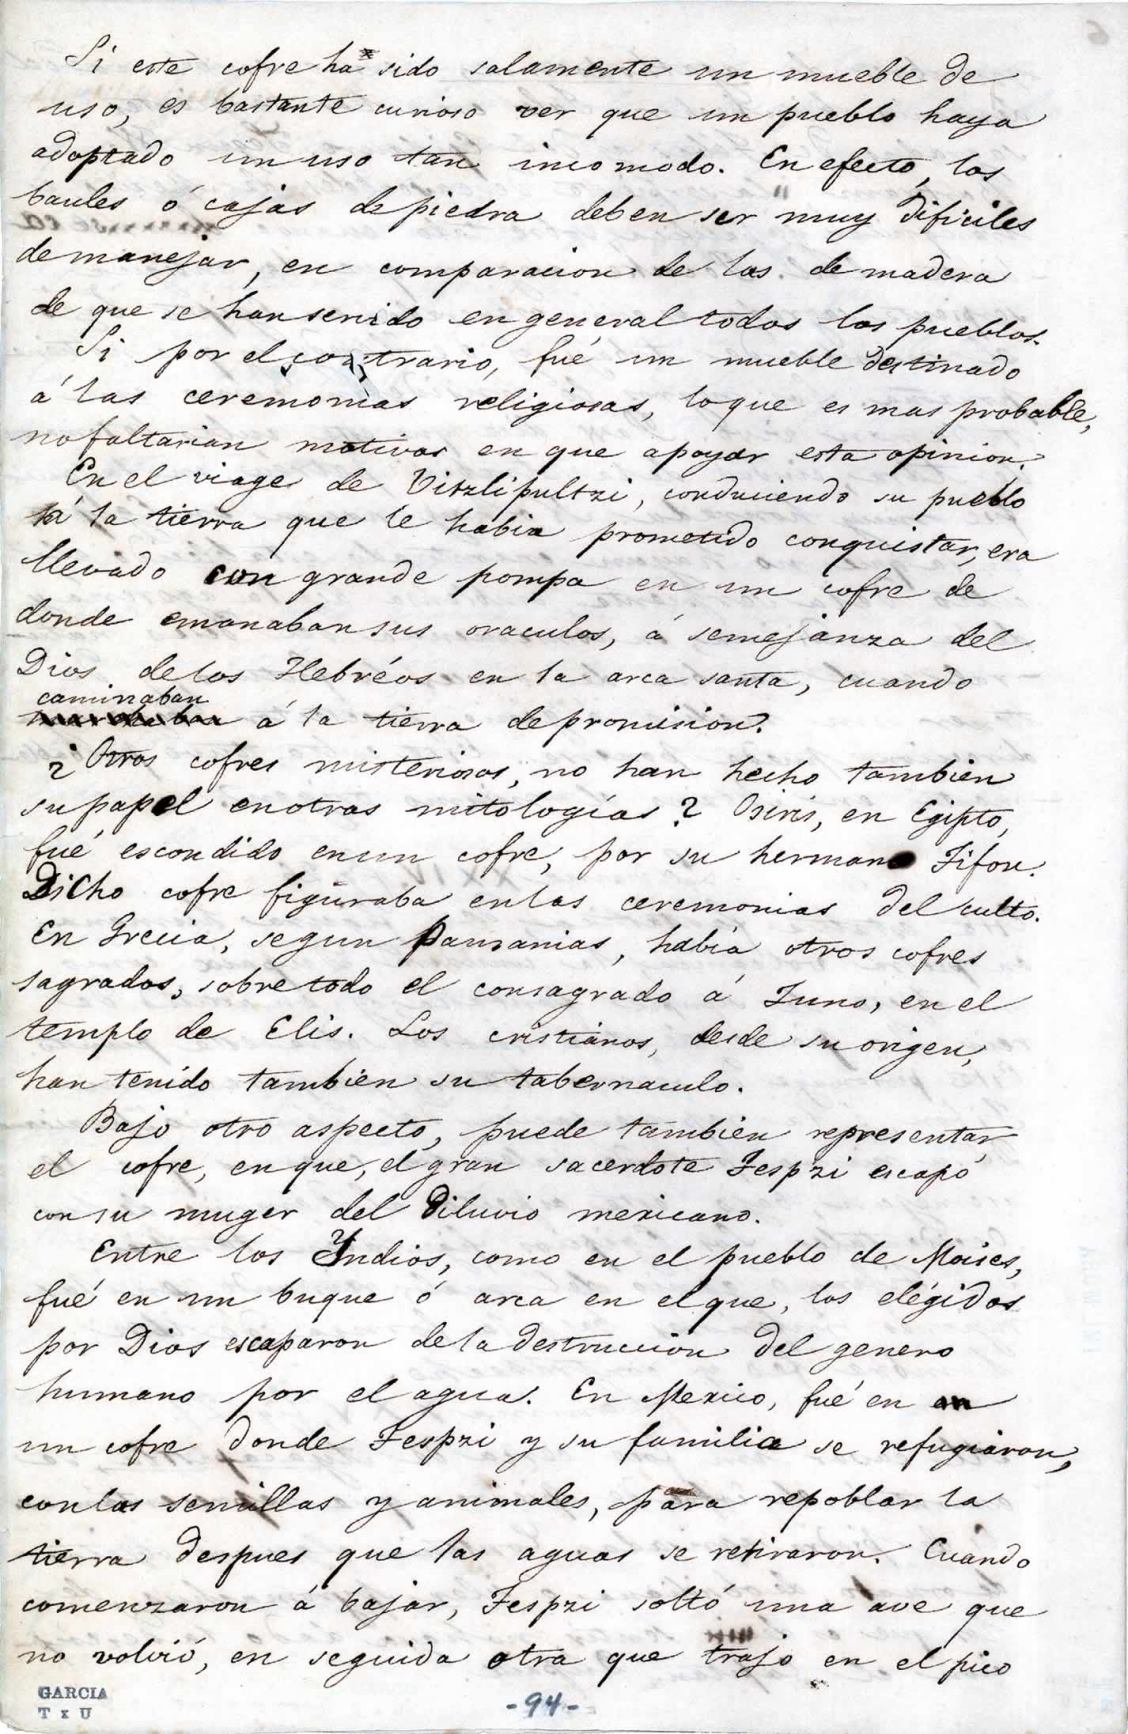 Si este cofre ha sido solamente un mueble de
uso, es bastante curioso ver que un pueblo haya
adoptado un uso tan incomodo. En efecto, los
baules ó cajas de piedra deben ser muy dificiles
de manejar, en comparacion de las de madera
de que se han servido en general todos los pueblos.
Si por el contrario, fué un mueble destinado
á las ceremonias religiosas, lo que es mas probable,
no faltarian motivos en que apoyar esta opinion.
En el viage de Vitzlipultzi, conduciendo su pueblo
á la tierra que le habia prometido conquistar, era
llevado con grande pompa en un cofre de
donde emanaban sus oraculos, á semejanza del
Dios de los Hebréos en la arca santa, cuando
caminaban
á la tierra de promision.
¿Otros cofres misteriosos, no han hecho tambien
su papel en otras mitologías? Osiris, en Egipto,
fué escondido en un cofre, por su hermano Tifon.
Dicho cofre figuraba en las ceremonias del culto.
En Grecia, segun Pausanias, había otros cofres
sagrados, sobre todo el consagrado á Juno, en el
templo de Elis. Los cristianos, desde su origen,
han tenido tambien su tabernaculo.
Bajo otro aspecto, puede tambien representar
el cofre, en que, el gran sacerdote Tespzi escapó
con su muger del Diluvio mexicano.
Entre los Yndios, como en el pueblo de Moises,
fué en un buque ó arca en el que, los elégidos
por Dios escaparon de la destruccion del genero
humano por el agua. En Mexico, fué en
un cofre donde Tespzi y su familia se refugiaron,
con las semillas y animales, para repoblar la
tierra despues que las aguas se retiraron. Cuando
comenzaron á bajar, Tespzi soltó una ave que
no volvió, en seguida otra que trajo en el pico
GARCIA
T x U
-94-